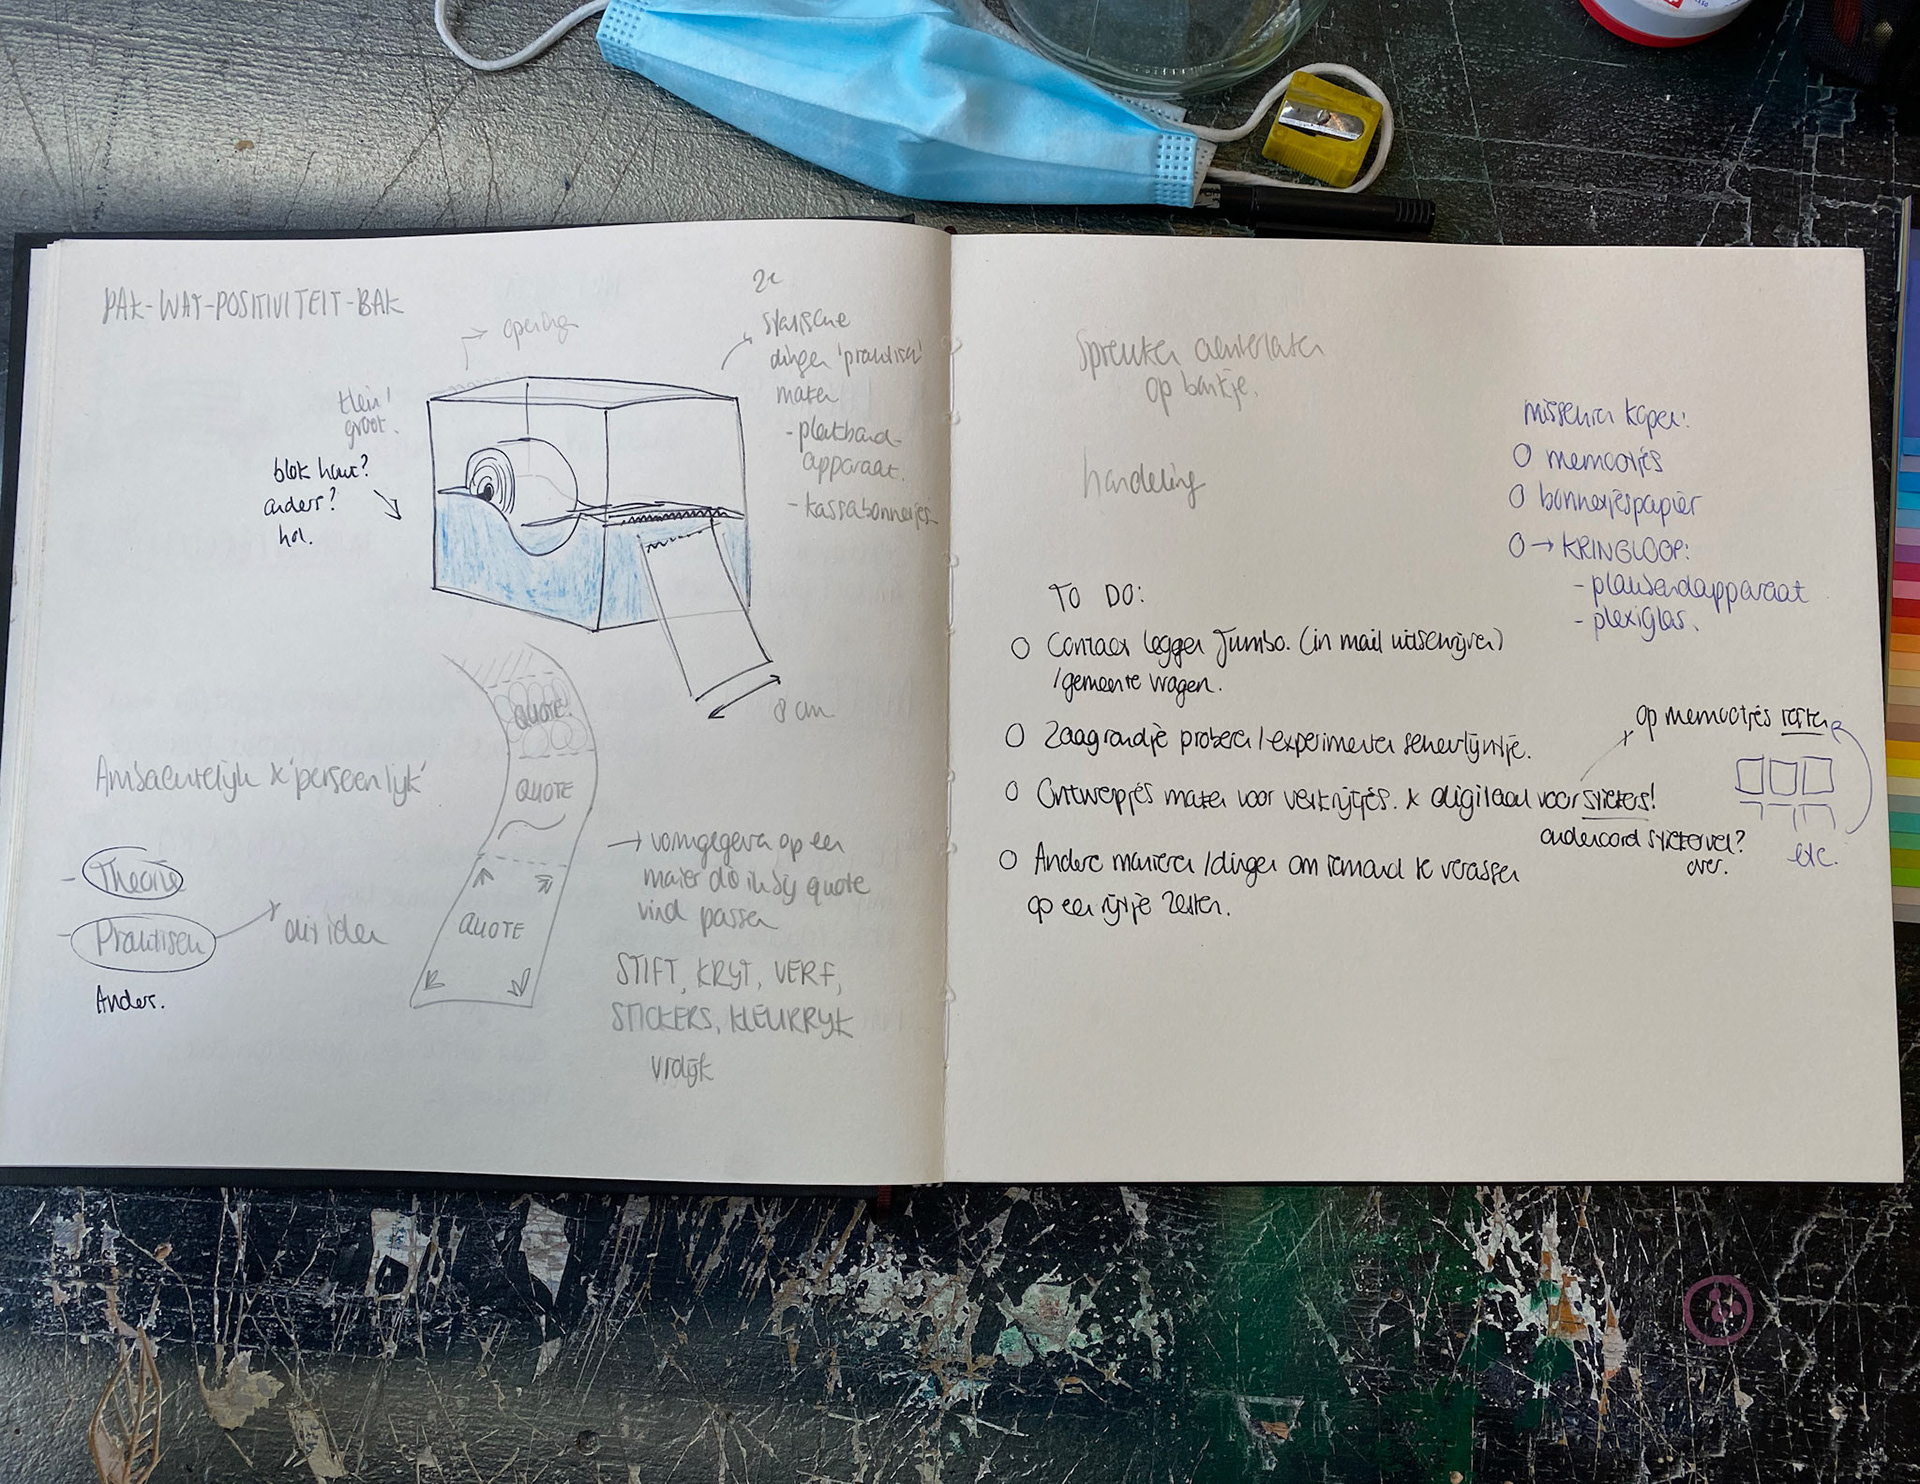 PAK-WAT-POSITIVITEIT-BAK
opening
klein!
groot.
blok hout?
anders?
hol.
2x
statische
dingen 'praktisch'
maken
- plakband-
apparaat.
- kassabonnetjes
8 cm
QUOTE!
QUOTE
QUOTE
Ambachtelijk x 'persoonlijk'
- Theorie
- Praktisch
Anders.
→ vormgegeven op een
manier die ik bij quote
vind passen
STIFT, KRYT, VERF,
STICKERS, KLEURRYK
vrolijk
Spreuken achterlaten
op bankje.
handeling
misschien kopen:
O memootjes
O bonnetjespapier
O → KRINGLOOP:
- plakbandapparaat
- plexiglas.
TO DO:
O Contact leggen Jumbo. (in mail uitschrijven)
/gemeente vragen.
O Zaagrandje proberen/experimenteren scheurlijntje.
O Ontwerpjes maken voor verkrijtjes. x digitaal voor stickers!
op memootjes testen
anderoord stickervel?
over.
etc.
O Andere manieren/dingen om iemand te verassen
op een rijtje zetten.